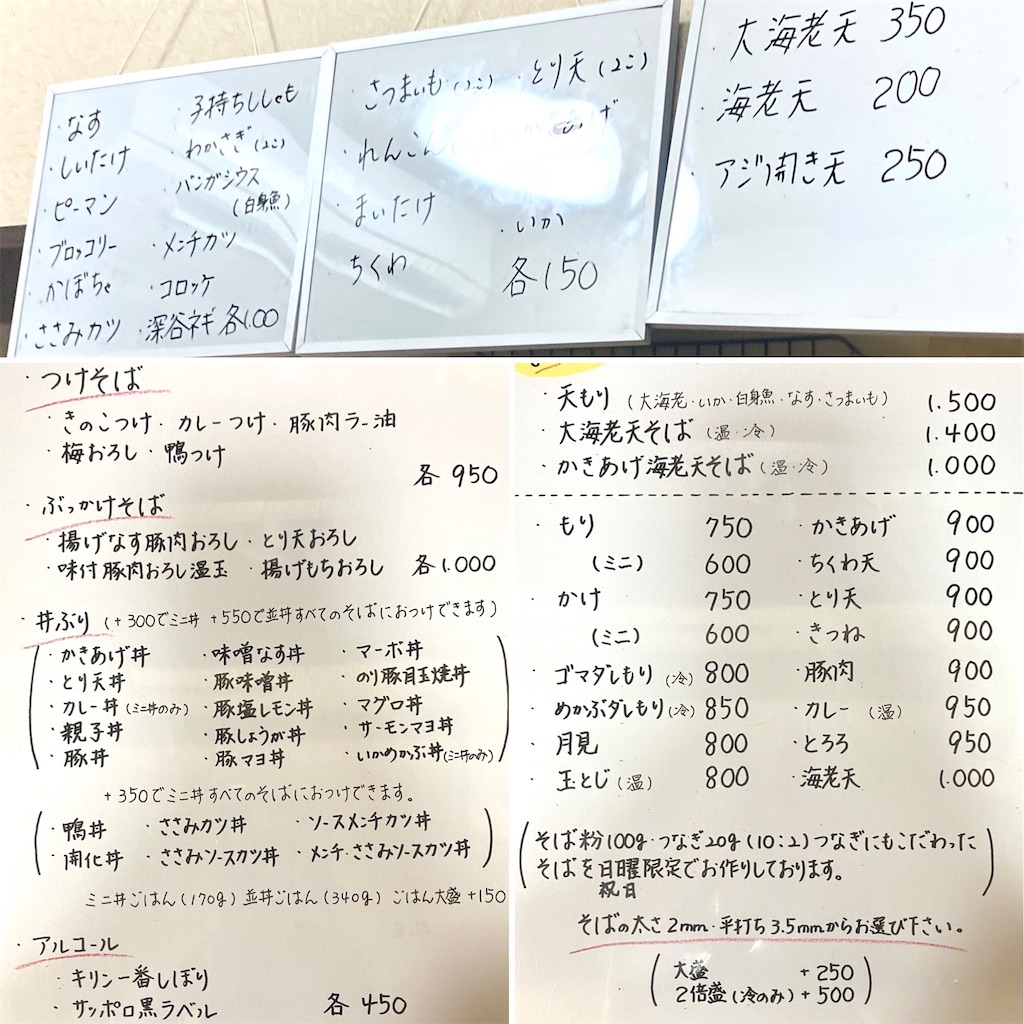 ・なす
・しいたけ
・ピーマン
・ブロッコリー
・かぼちゃ
・ささみカツ
・子持ちししゃも
・わかさぎ(2こ)
・パンガシウス
(白身魚)
・メンチカツ
・コロッケ
・深谷ネギ 各100
・さつまいも(2こ)
・れんこん
・まいたけ
・ちくわ
・とり天(2こ)
・いか
各150
・大海老天 350
・海老天 200
・アジ開き天 250
・つけそば
・きのこつけ・カレーつけ・豚肉ラー油
・梅おろし・鴨つけ
各950
・ぶっかけそば
・揚げなす豚肉おろし・とり天おろし
・味付豚肉おろし温玉・揚げもちおろし 各1.000
・丼ぶり(+300でミニ丼 +550で並丼すべてのそばにおつけできます)
・かきあげ丼 ・味噌なす丼 ・マーボ丼
・とり天丼 ・豚味噌丼 ・のり豚目玉焼丼
・カレー丼(ミニ丼のみ) ・豚塩レモン丼 ・マグロ丼
・親子丼 ・豚しょうが丼 ・サーモンマヨ丼
・豚丼 ・豚マヨ丼 ・いかめかぶ丼(ミニ丼のみ)
+350でミニ丼すべてのそばにおつけできます。
・鴨丼 ・ささみカツ丼 ・ソースメンチカツ丼
・開化丼 ・ささみソースカツ丼 ・メンチ・ささみソースカツ丼
ミニ丼ごはん(170g)並丼ごはん(340g)ごはん大盛+150
・アルコール
・キリン一番しぼり
・サッポロ黒ラベル 各450
・天もり(大海老・いか・白身魚・なす・さつまいも) 1.500
・大海老天そば(温・冷) 1.400
・かきあげ海老天そば(温・冷) 1.000
・もり 750 ・かきあげ 900
(ミニ) 600 ・ちくわ天 900
・かけ 750 ・とり天 900
(ミニ) 600 ・きつね 900
・ゴマダレもり(冷) 800 ・豚肉 900
・めかぶダレもり(冷) 850 ・カレー(温) 950
・月見 800 ・とろろ 950
・玉とじ(温) 800 ・海老天 1.000
(そば粉100g・つなぎ20g(10:2)つなぎにもこだわった
そばを日曜限定でお作りしております。)
祝日
そばの太さ2mm・平打ち3.5mmからお選び下さい。
(大盛 +250
2倍盛(冷のみ)+500)